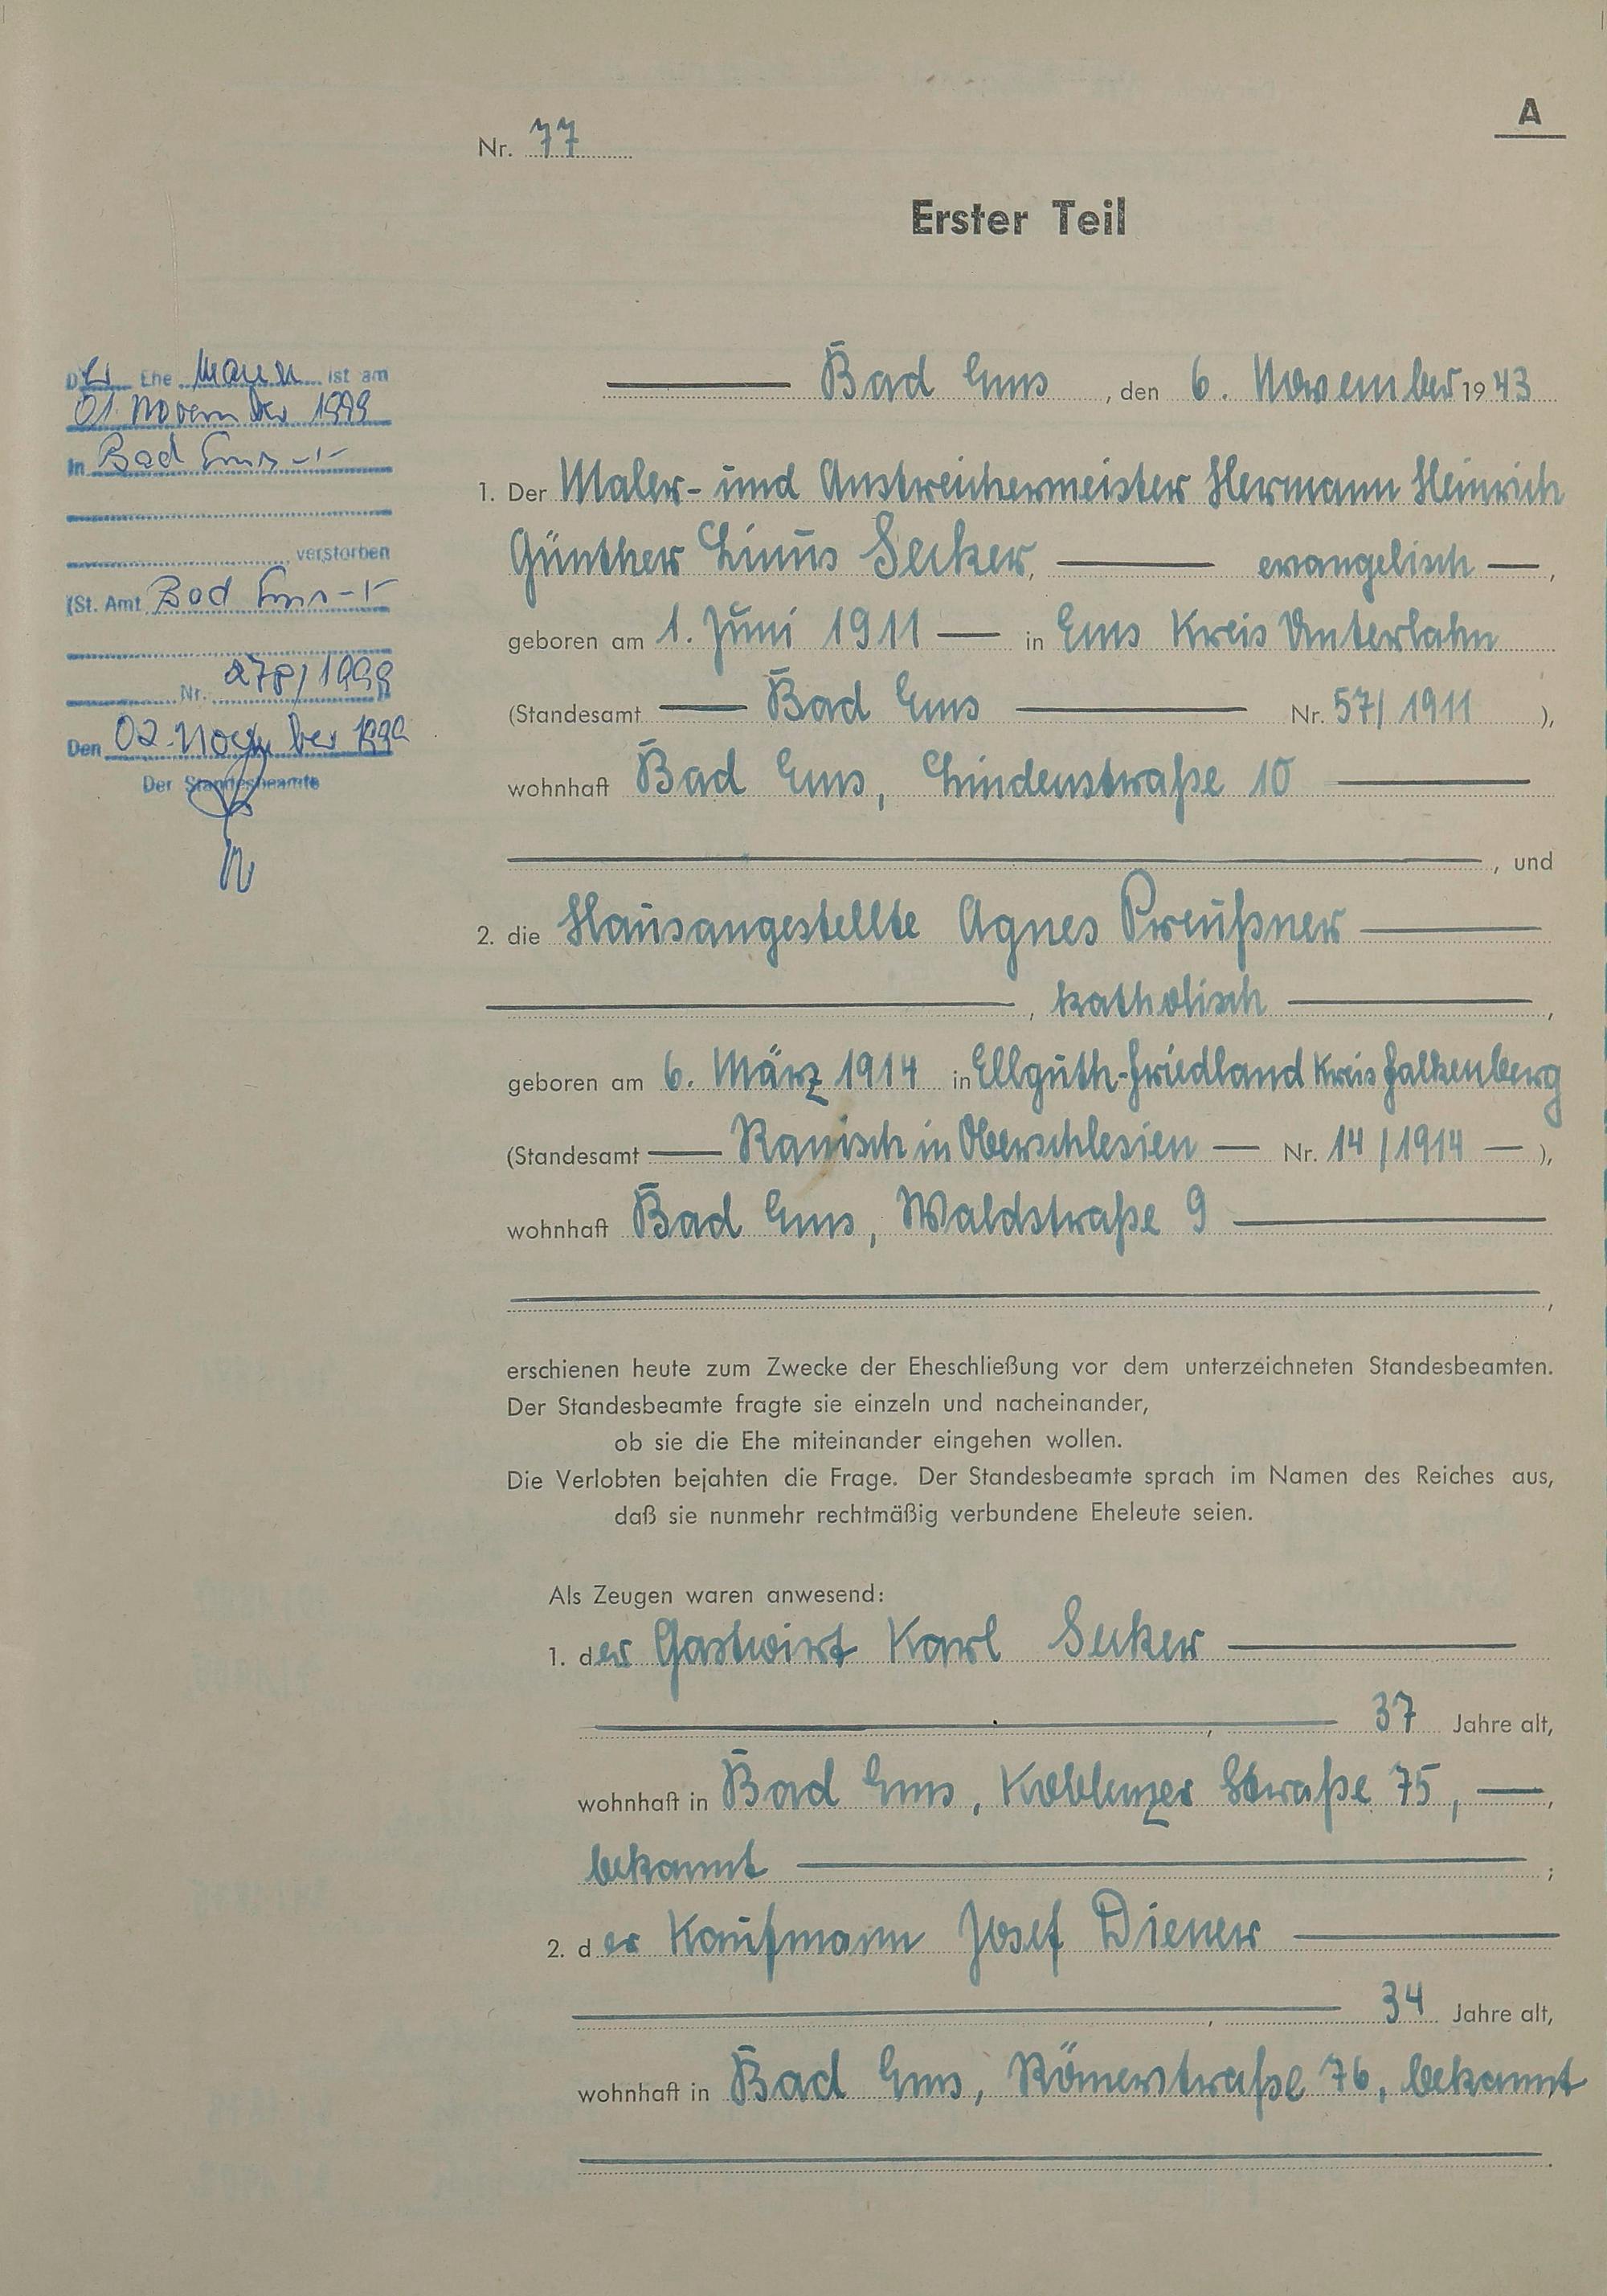 A
Nr. 77
Erster Teil
Der Ehemann ist am
01. November 1999
In Bad Ems -1-
verstorben
(St. Amt Bad Ems -1-
Nr. 278/1999
Den 02. November 1999
Der Standesbeamte
Bad Ems, den 6. November 1943
1. Der Maler- und Anstreichermeister Hermann Heinrich
Günther Linus Secker, evangelisch,
geboren am 1. Juni 1911 in Ems Kreis Unterlahn
(Standesamt Bad Ems Nr. 57/1911),
wohnhaft Bad Ems, Lindenstraße 10
, und
2. die Hausangestellte Agnes Preußner
, katholisch,
geboren am 6. März 1914 in Ellguth-Friedland Kreis Falkenberg
(Standesamt in Oberschlesien Nr. 14/1914),
wohnhaft Bad Ems, Waldstraße 9
erschienen heute zum Zwecke der Eheschließung vor dem unterzeichneten Standesbeamten.
Der Standesbeamte fragte sie einzeln und nacheinander,
ob sie die Ehe miteinander eingehen wollen.
Die Verlobten bejahten die Frage. Der Standesbeamte sprach im Namen des Reiches aus,
daß sie nunmehr rechtmäßig verbundene Eheleute seien.
Als Zeugen waren anwesend:
1. der Gastwirt Karl Secker
, 37 Jahre alt,
wohnhaft in Bad Ems, Koblenzer Straße 75,
bekannt;
2. der Kaufmann Josef Diener
, 34 Jahre alt,
wohnhaft in Bad Ems, Römerstraße 76, bekannt